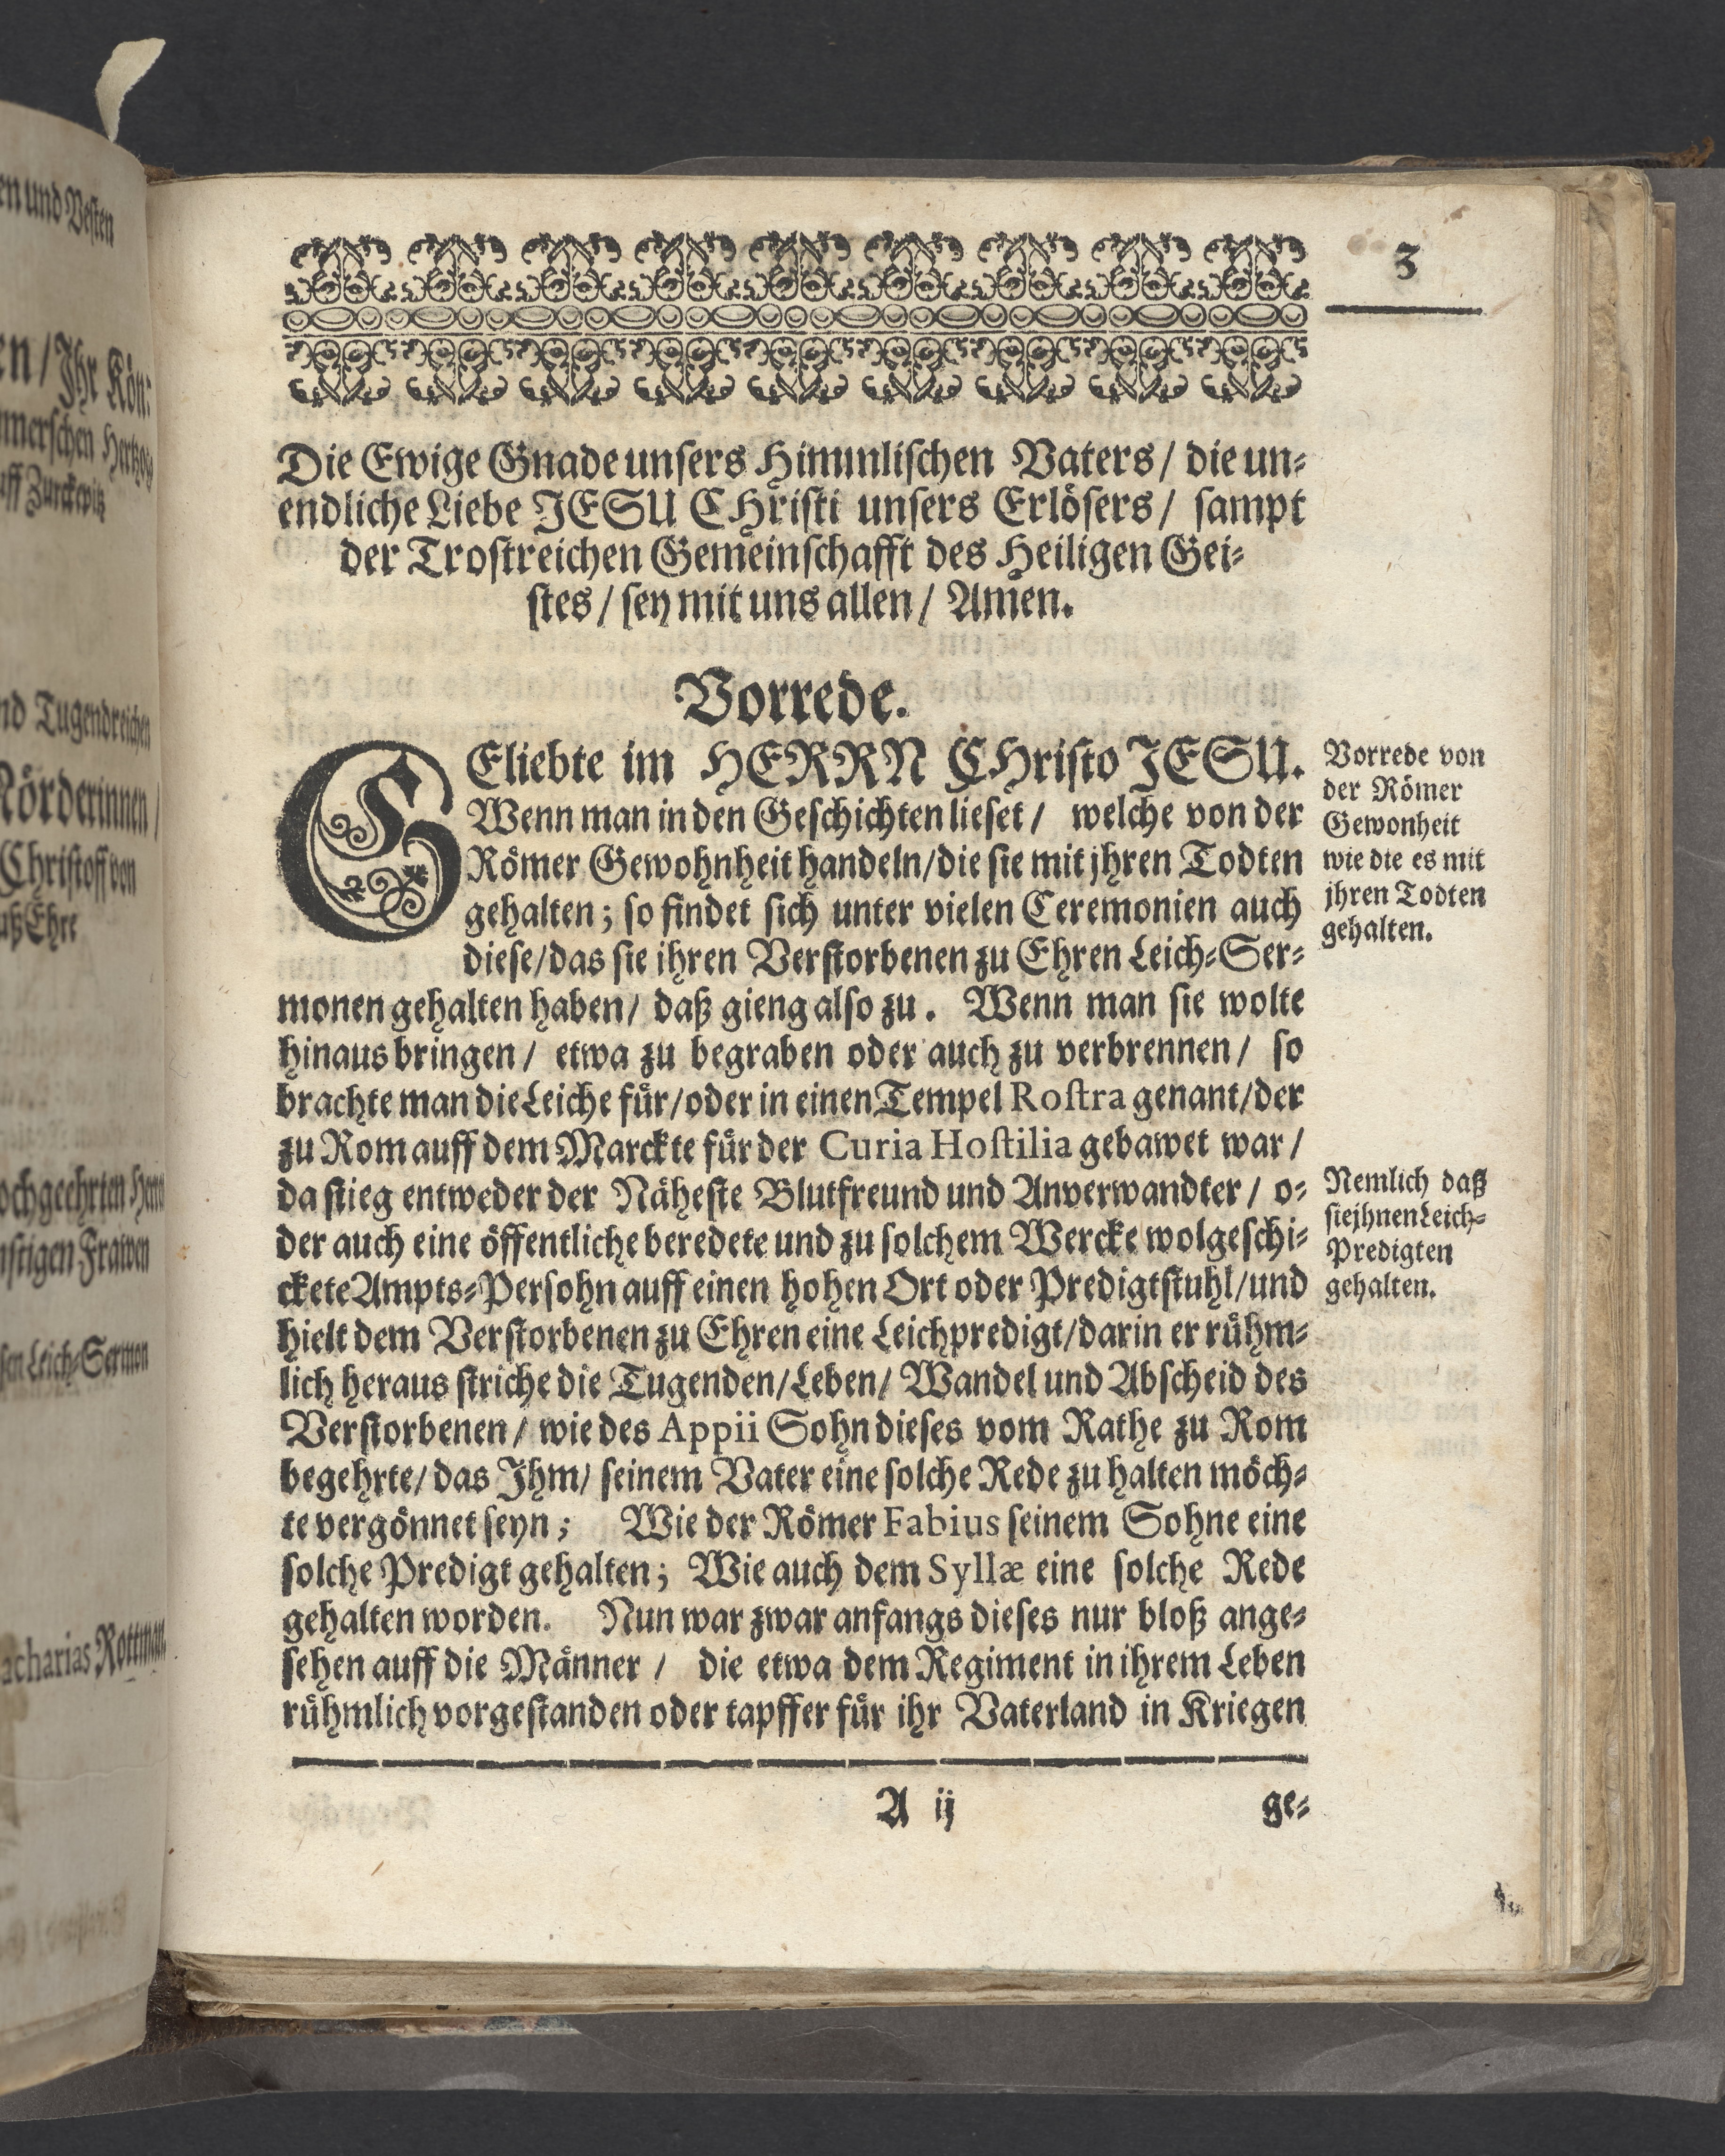 en und Vesten
en/Ihr Kön:
mmerschen Hertzog
uff Zurckvitz
nd Tugendreichen
Nörderinnen/
Christoff von
uß Ehre
ochgeehrten Herrn
nstigen Frawen
sen Leich-Sermon
acharias Rottman.
3
Die Ewige Gnade unsers Himmlischen Vaters/ die un-
endliche Liebe JESU CHristi unsers Erlösers/ sampt
der Trostreichen Gemeinschafft des Heiligen Gei-
stes/ sey mit uns allen/ Amen.
Vorrede.
GEliebte im HERRN CHristo JESU.
Wenn man in den Geschichten lieset/ welche von der
Römer Gewohnheit handeln/die sie mit jhren Todten
gehalten; so findet sich unter vielen Ceremonien auch
diese/das sie ihren Verstorbenen zu Ehren Leich-Ser-
monen gehalten haben/ daß gieng also zu. Wenn man sie wolte
hinaus bringen/ etwa zu begraben oder auch zu verbrennen/ so
brachte man die Leiche für/oder in einen Tempel Rostra genant/der
zu Rom auff dem Marckte für der Curia Hostilia gebawet war/
da stieg entweder der Näheste Blutfreund und Anverwandter/ o-
der auch eine öffentliche beredete und zu solchem Wercke wolgeschi-
ckete Ampts-Persohn auff einen hohen Ort oder Predigtstuhl/und
hielt dem Verstorbenen zu Ehren eine Leichpredigt/darin er rühm-
lich heraus striche die Tugenden/Leben/ Wandel und Abscheid des
Verstorbenen/ wie des Appii Sohn dieses vom Rathe zu Rom
begehrte/ das Ihm/ seinem Vater eine solche Rede zu halten möch-
te vergönnet seyn; Wie der Römer Fabius seinem Sohne eine
solche Predigt gehalten; Wie auch dem Syllæ eine solche Rede
gehalten worden. Nun war zwar anfangs dieses nur bloß ange-
sehen auff die Männer/ die etwa dem Regiment in ihrem Leben
rühmlich vorgestanden oder tapffer für ihr Vaterland in Kriegen
A ij
ge-
Vorrede von
der Römer
Gewonheit
wie die es mit
jhren Todten
gehalten.
Nemlich daß
sie jhnen Leich-
Predigten
gehalten.